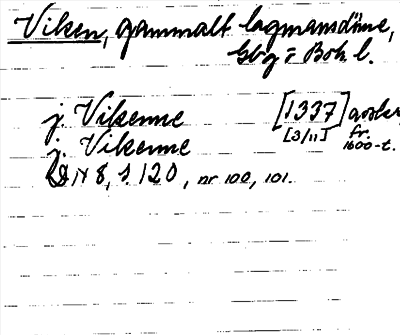 Viken, gammalt lagmansdöme,
Gbg o Boh l.
j. Vikenne [1337] avskr.
j. Vikenne [3/11] fr. 1600-t.
DN 8, s. 120, nr 100, 101.